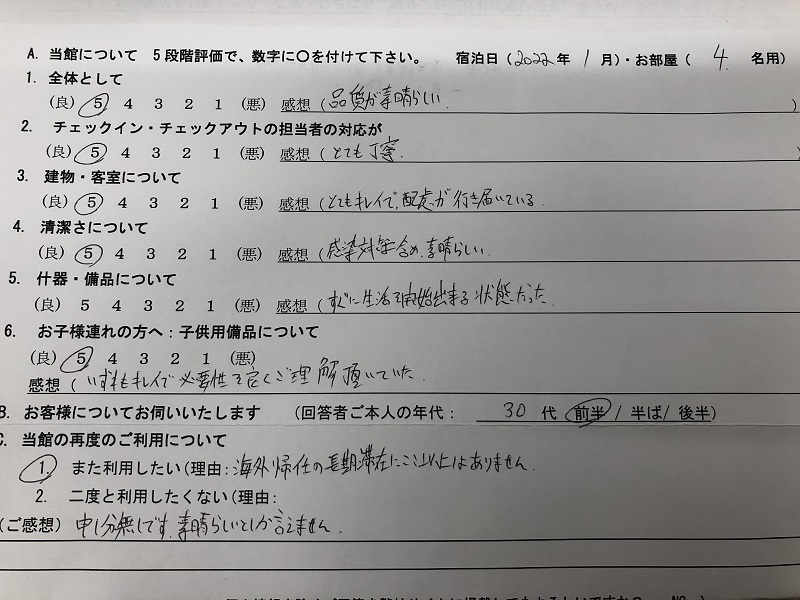 A. 当館について 5段階評価で、数字に〇を付けて下さい。 宿泊日(2022年 1月)・お部屋( 4 名用)
1. 全体として
(良) 5 4 3 2 1 (悪) 感想(品質が素晴らしい )
2. チェックイン・チェックアウトの担当者の対応が
(良) 5 4 3 2 1 (悪) 感想(とても丁寧. )
3. 建物・客室について
(良) 5 4 3 2 1 (悪) 感想(とてもキレイで、配慮が行き届いている.
4. 清潔さについて
(良) 5 4 3 2 1 (悪) 感想(感染対策含め、素晴らしい.
5. 什器・備品について
(良) 5 4 3 2 1 (悪) 感想(すぐに生活を開始出来る状態だった.
6. お子様連れの方へ:子供用備品について
(良) 5 4 3 2 1 (悪)
感想(いずれもキレイで必要性を良くご理解頂いていた.
B. お客様についてお伺いいたします (回答者ご本人の年代: 30 代 前半/半ば/後半)
C. 当館の再度のご利用について
1. また利用したい(理由:海外帰任の長期滞在にここ以上はありません.
2. 二度と利用したくない(理由:
(ご感想) 申し分無しです.素晴らしいとしか言えません.